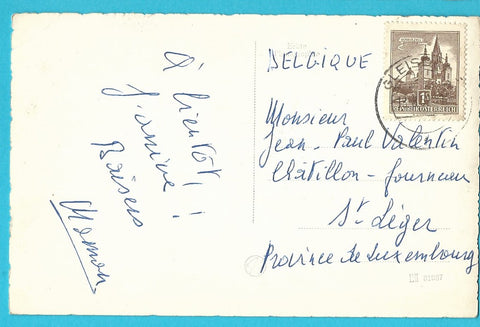 À bientôt!
J'arrive!
Baisers
Maman
BELGIQUE
Monsieur
Jean-Paul Valentin
Châtillon-
St Léger
Province de Luxembourg
GLEIS
1S
REPUBLIK ÖSTERREICH